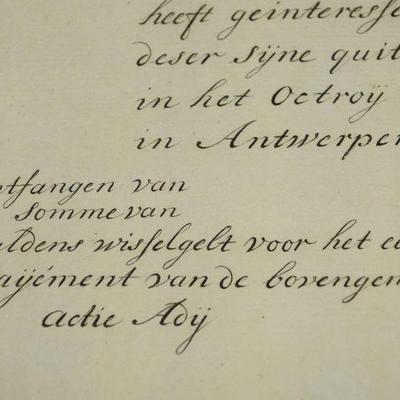 heeft geinteresse
deser sijne quit
in het Octroÿ
in Antwerpen
ntfangen van
Somme van
uldens wisselgelt voor het ee
aijément van de bovengem
actie Adij